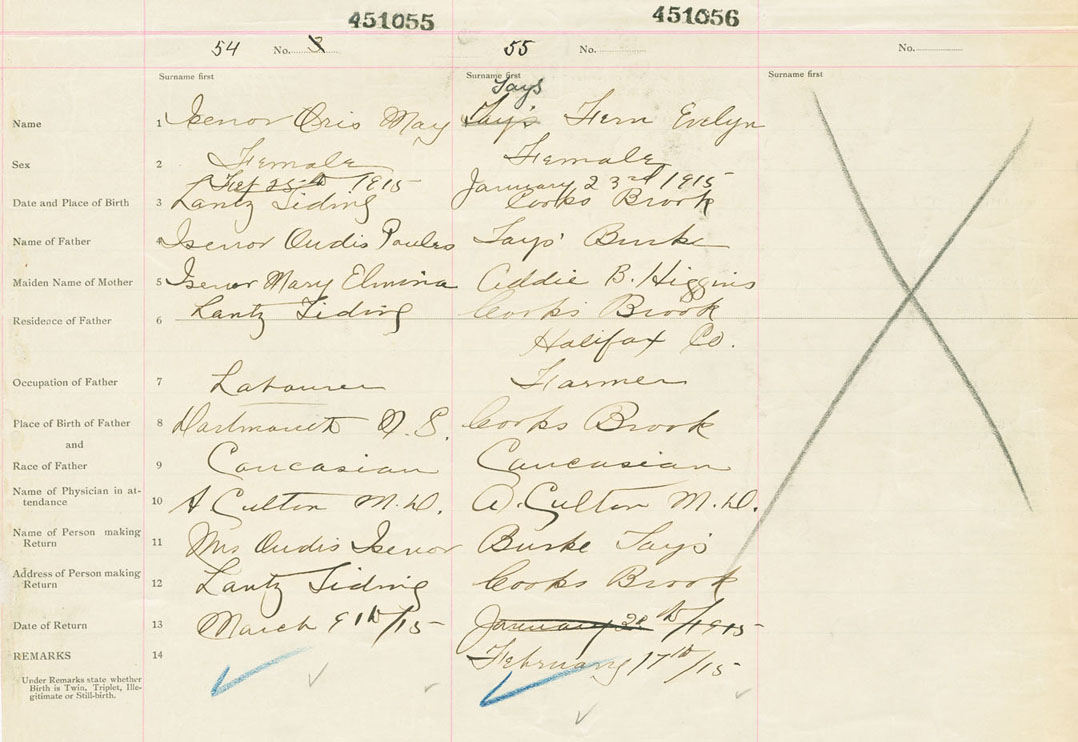 451055 451056
54 No. 3 55 No. No.
Surname first Surname first Surname first
Tays
Name 1 Isenor Oris May Tay's Fern Evelyn
Sex 2 Female Female
Feb 25th 1915 January 23rd 1915
Date and Place of Birth 3 Lantz Siding Cooks Brook
Name of Father 4 Isenor Oudis Tays' Burke
Maiden Name of Mother 5 Isenor Mary Elmina Addie B. Higgins
Residence of Father 6 Lantz Siding Cooks Brook
Halifax Co.
Occupation of Father 7 Labourer Farmer
Place of Birth of Father 8 Dartmouth N.S. Cooks Brook
and
Race of Father 9 Caucasian Caucasian
Name of Physician in at-
tendance 10 A Culton M.D. A. Culton M.D.
Name of Person making
Return 11 Mrs Oudis Isenor Burke Tays
Address of Person making
Return 12 Lantz Siding Cooks Brook
Date of Return 13 March 9th/15 January th/1915
REMARKS 14 February 17th/15
Under Remarks state whether
Birth is Twin, Triplet, Ille-
gitimate or Still-birth.